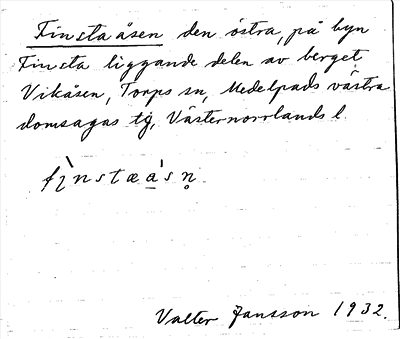 Finsta åsen den östra, på byn
Finsta liggande delen av berget
Vikåsen, Torps sn, Medelpads västra
domsagas tg, Västernorrlands l.
fı̀nstæa̲ˈsn̥
Valter Jansson 1932.